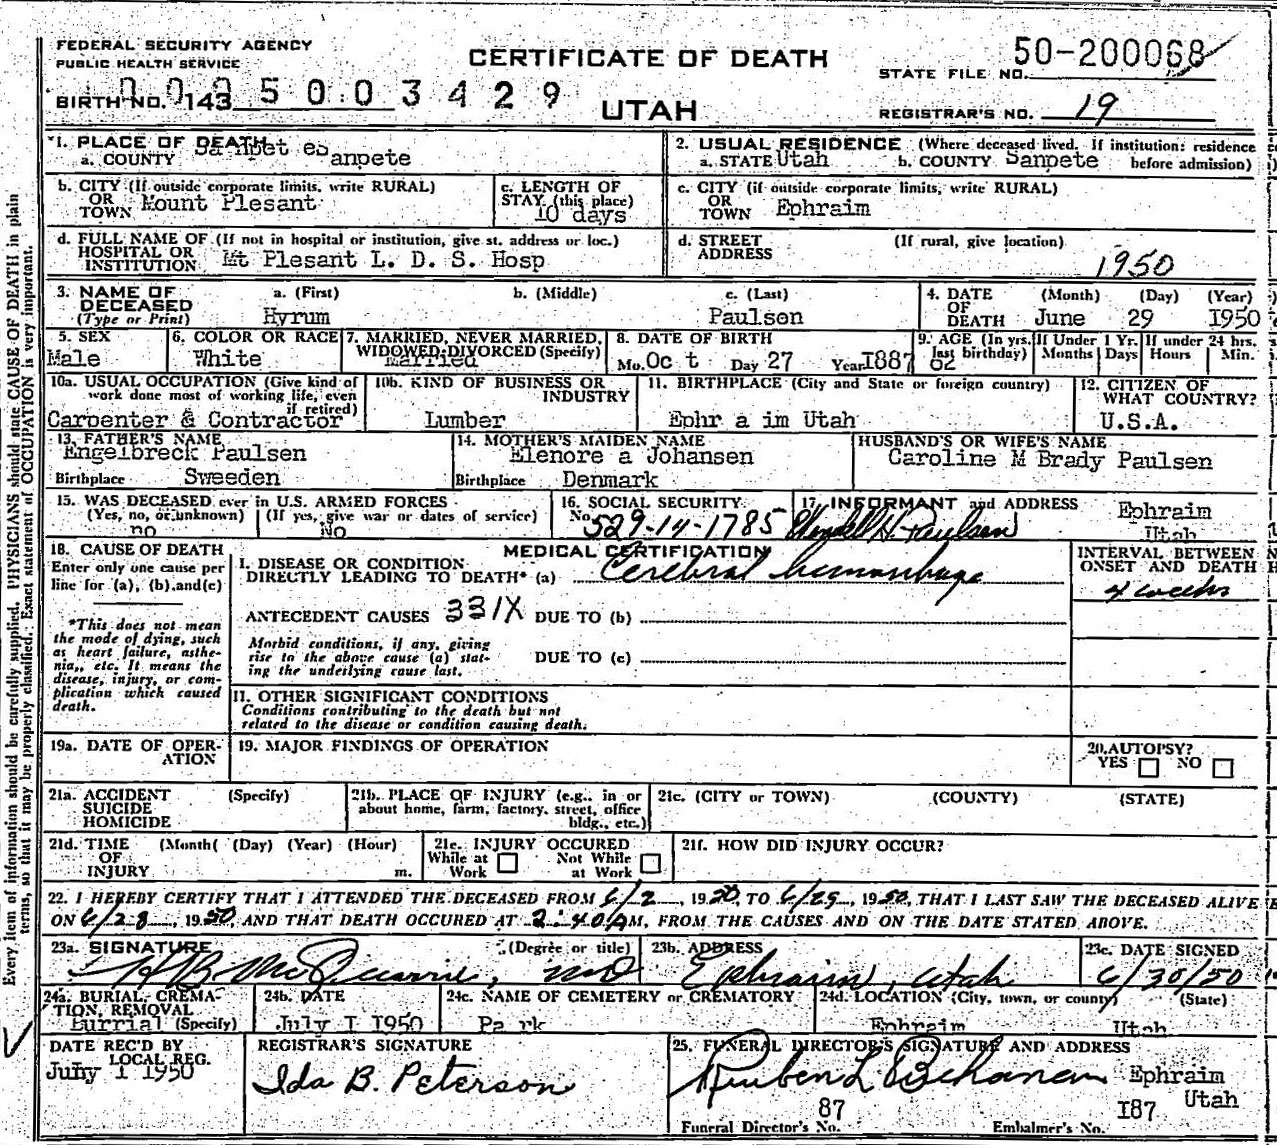 FEDERAL SECURITY AGENCY
PUBLIC HEALTH SERVICE
CERTIFICATE OF DEATH
50-200068
STATE FILE NO.
BIRTH NO. 143
0095003429
UTAH
REGISTRAR'S NO. 19
1. PLACE OF DEATH
a. COUNTY Sanpete
2. USUAL RESIDENCE (Where deceased lived. If institution: residence before admission)
a. STATE Utah b. COUNTY Sanpete
b. CITY (If outside corporate limits, write RURAL)
OR TOWN Mount Plesant
c. LENGTH OF STAY (this place)
10 days
c. CITY (if outside corporate limits, write RURAL)
OR TOWN Ephraim
d. FULL NAME OF (If not in hospital or institution, give st. address or loc.)
HOSPITAL OR INSTITUTION Mt Plesant L. D. S. Hosp
d. STREET ADDRESS (If rural, give location)
1950
3. NAME OF DECEASED (Type or Print)
a. (First) b. (Middle) c. (Last)
Hyrum Paulsen
4. DATE OF DEATH (Month) (Day) (Year)
June 29 1950
5. SEX
Male
6. COLOR OR RACE
White
7. MARRIED, NEVER MARRIED, WIDOWED, DIVORCED (Specify)
Married
8. DATE OF BIRTH
Mo. Oct Day 27 Year 1887
9. AGE (In yrs. last birthday)
62
If Under 1 Yr. Months Days
If under 24 hrs. Hours Min.
10a. USUAL OCCUPATION (Give kind of work done most of working life, even if retired)
Carpenter & Contractor
10b. KIND OF BUSINESS OR INDUSTRY
Lumber
11. BIRTHPLACE (City and State or foreign country)
Ephr a im Utah
12. CITIZEN OF WHAT COUNTRY?
U.S.A.
13. FATHER'S NAME
Engelbreck Paulsen
Birthplace Sweeden
14. MOTHER'S MAIDEN NAME
Elenore a Johansen
Birthplace Denmark
HUSBAND'S OR WIFE'S NAME
Caroline M Brady Paulsen
15. WAS DECEASED ever in U.S. ARMED FORCES
(Yes, no, or unknown) (If yes, give war or dates of service)
no No
16. SOCIAL SECURITY
No. 529-14-1785
17. INFORMANT and ADDRESS
Wendell H. Paulson
Ephraim
Utah
18. CAUSE OF DEATH
Enter only one cause per line for (a), (b), and (c)
*This does not mean the mode of dying, such as heart failure, asthenia, etc. It means the disease, injury, or complication which caused death.
MEDICAL CERTIFICATION
I. DISEASE OR CONDITION
DIRECTLY LEADING TO DEATH* (a) Cerebral hemorrhage
INTERVAL BETWEEN ONSET AND DEATH
4 weeks
ANTECEDENT CAUSES 331X DUE TO (b)
Morbid conditions, if any, giving rise to the above cause (a) stating the underlying cause last.
DUE TO (c)
II. OTHER SIGNIFICANT CONDITIONS
Conditions contributing to the death but not related to the disease or condition causing death.
19a. DATE OF OPERATION
19. MAJOR FINDINGS OF OPERATION
20. AUTOPSY?
YES NO
21a. ACCIDENT (Specify)
SUICIDE
HOMICIDE
21b. PLACE OF INJURY (e.g., in or about home, farm, factory, street, office bldg., etc.)
21c. (CITY or TOWN) (COUNTY) (STATE)
21d. TIME OF INJURY (Month( (Day) (Year) (Hour) m.
21e. INJURY OCCURED
While at Work Not While at Work
21f. HOW DID INJURY OCCUR?
22. I HEREBY CERTIFY THAT I ATTENDED THE DECEASED FROM 6/2, 1950, TO 6/29, 1950, THAT I LAST SAW THE DECEASED ALIVE
ON 6/28, 1950, AND THAT DEATH OCCURED AT 2:40 AM, FROM THE CAUSES AND ON THE DATE STATED ABOVE.
23a. SIGNATURE (Degree or title)
H B McQuarrie, MD
23b. ADDRESS
Ephraim, Utah
23c. DATE SIGNED
6/30/50
24a. BURIAL, CREMATION, REMOVAL (Specify)
Burrial
24b. DATE
July 1 1950
24c. NAME OF CEMETERY or CREMATORY
Park
24d. LOCATION (City, town, or county) (State)
Ephraim Utah
DATE REC'D BY LOCAL REG.
July 1 1950
REGISTRAR'S SIGNATURE
Ida B. Peterson
25. FUNERAL DIRECTOR'S SIGNATURE AND ADDRESS
Reuben L Buchanan Ephraim
Utah
87
Funeral Director's No.
187
Embalmer's No.
Every item of information should be carefully supplied. PHYSICIANS should state CAUSE OF DEATH in plain
terms, so that it may be properly classified. Exact statement of OCCUPATION is very important.